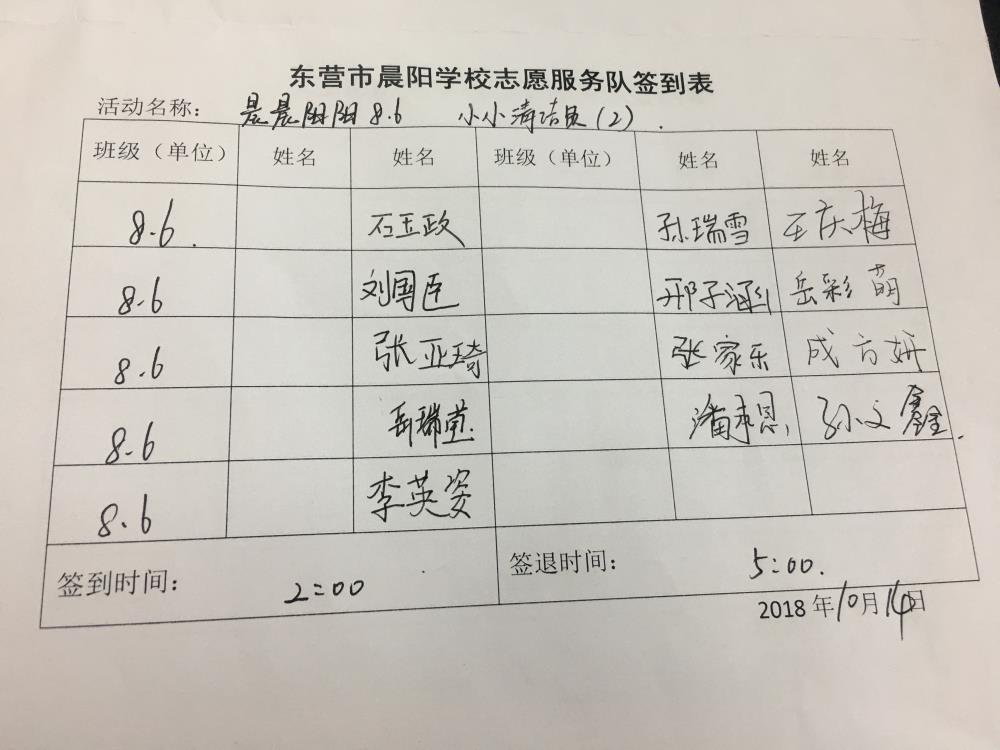 东营市晨阳学校志愿服务队签到表
活动名称：晨晨阳阳8.6 小小清洁员（2）.
班级（单位） 姓名 姓名 班级（单位） 姓名 姓名
8.6. 石玉政 孙瑞雪 王庆梅
8.6 刘国臣 邢子涵 岳彩萌
8.6 张亚琦 张家乐 成方妍
8.6 岳瑞莹 潘 孙文鑫.
8.6 李英姿
签到时间：2:00 签退时间：5:00.
2018年10月14日